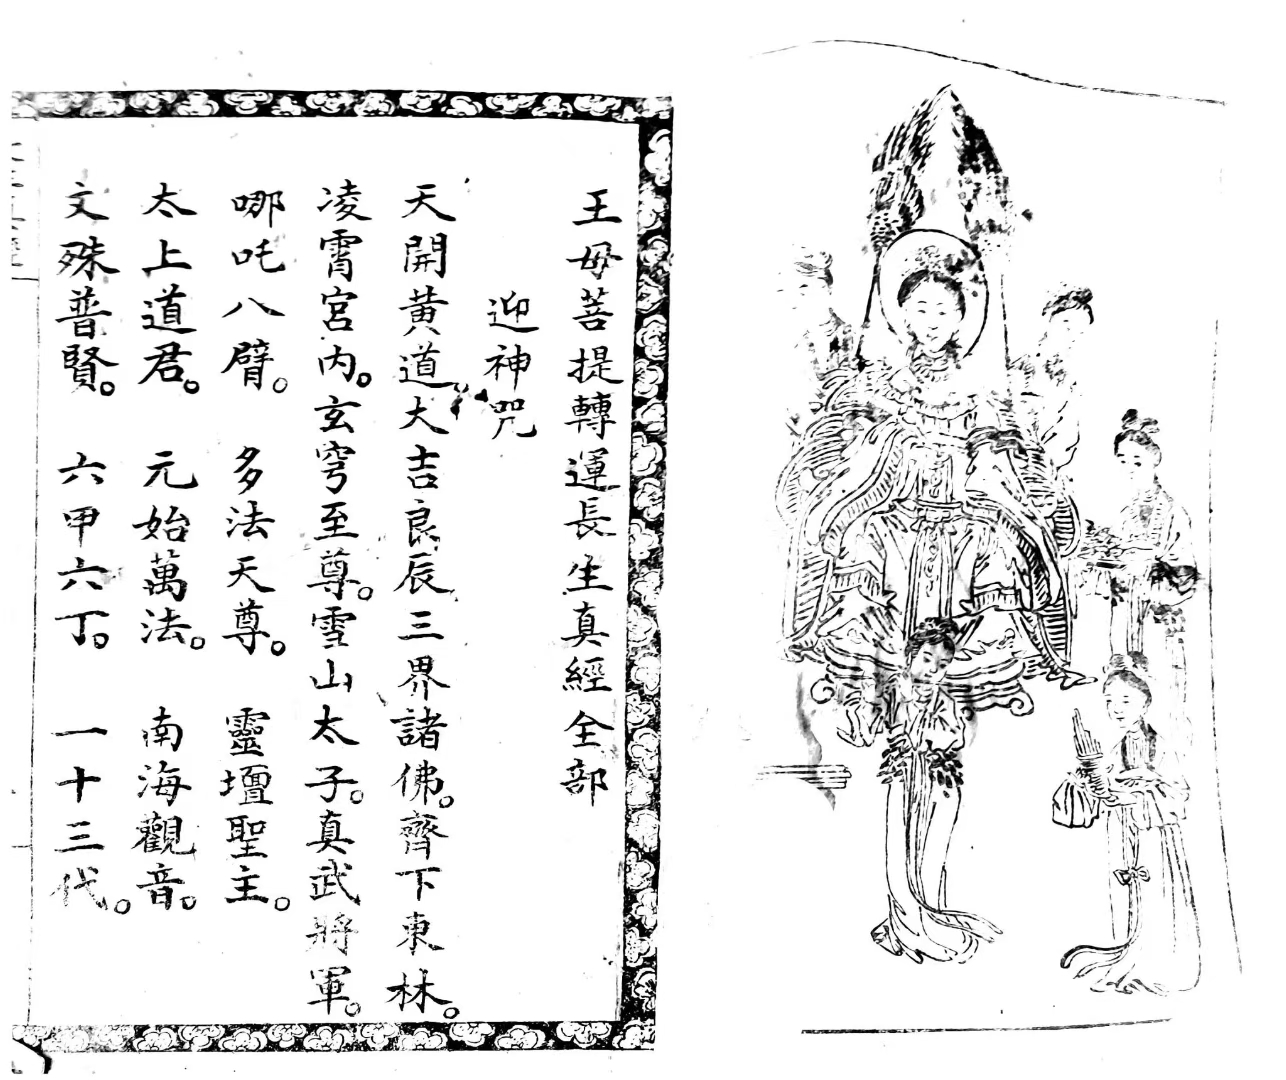 王母菩提轉運長生真經全部
迎神咒
天開黃道。大吉良辰三界諸佛。齊下東林。
凌霄宮內。玄穹至尊。雪山太子。真武將軍。
哪吒八臂。多法天尊。靈壇聖主。
太上道君。元始萬法。南海觀音。
文殊普賢。六甲六丁。一十三代。